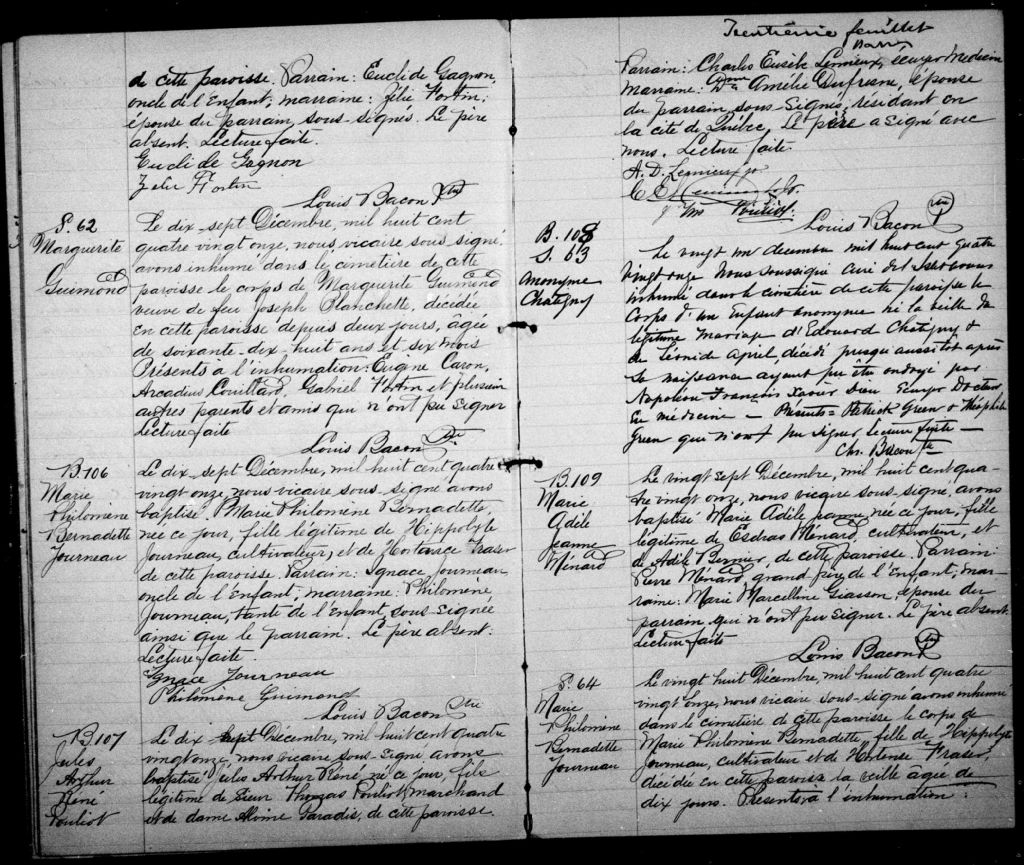 de cette paroisse. Parrain: Euclide Gagnon,
oncle de l'Enfant; marraine: Zélie Fortin;
épouse du parrain, sous-signés. Le père
absent. Lecture faite.
Euclide Gagnon
Zelie Fortin
Louis Bacon Ptre
S. 62
Marguerite
Guimond
Le dix-sept Décembre, mil huit cent
quatre vingt onze, nous vicaire sous-signé,
avons inhumé dans le cimetière de cette
paroisse le corps de Marguerite Guimond
veuve de feu Joseph Blanchette, décédée
en cette paroisse depuis deux jours, âgée
de soixante-dix-huit ans et six mois
Présents à l'inhumation: Eugène Caron,
Arcadius Couillard, Gabriel Fortin et plusieurs
autres parents et amis qui n'ont pu signer
Lecture faite
Louis Bacon Ptre
B. 106
Marie
Philomène
Bernadette
Journeau
Le dix-sept Décembre, mil huit cent quatre
vingt onze, nous vicaire sous-signé avons
baptisé Marie Philomène Bernadette,
née ce jour, fille légitime de Hippolyte
Journeau, cultivateur, et de Hortence Fraser
de cette paroisse. Parrain: Ignace Journeau
oncle de l'Enfant; marraine: Philomène
Journeau, tante de l'Enfant, sous-signée
ainsi que le parrain. Le père absent.
Lecture faite.
Ignace Journeau
Philomène Guimond
Louis Bacon Ptre
B. 107
Jules
Arthur
René
Pouliot
Le dix-sept Décembre, mil huit cent quatre
vingt onze, nous vicaire sous-signé avons
baptisé Jules Arthur René, né ce jour, fils
légitime de Sieur Thomas Pouliot, marchand
et de dame Alvine Paradis, de cette paroisse.
Trentième feuillet
Parrain: Charles Eusèbe Lemieux, écuyer médecin
marraine: Dme Amélie Dufresne, épouse
du parrain, sous-signés, résidant en
la cité de Québec, Le père a signé avec
nous. Lecture faite.
A. D. Lemieux
C E Lemieux
Pouliot
Louis Bacon Ptre
B. 108
S. 63
Anonyme
Chatigny
Le vingt un décembre mil huit cent quatre
vingt onze Nous soussigné curé de
inhumé dans le cimetière de cette paroisse le
corps d'un Enfant anonyme né la veille du
légitime mariage d'Edouard Chatigny &
de Léonide April, décédé presqu'aussitôt après
sa naissance ayant pu être ondoyé par
Napoléon François Xavier Dion Ecuyer Docteur
En médecine — Présents Patrick Green & Théophile
Green qui n'ont pu signer lecture faite —
Chs. Bacon Ptre
B. 109
Marie
Adèle
Jeanne
Ménard
Le vingt sept Décembre, mil huit cent qua-
tre vingt onze, nous vicaire sous-signé, avons
baptisé Marie Adèle Jeanne née ce jour, fille
légitime de Esdras Ménard, cultivateur, et
de Adèle Bernier, de cette paroisse. Parrain:
Pierre Ménard, grand père de l'Enfant; mar-
raine: Marie Marcelline Giasson, épouse du
parrain qui n'ont pu signer. Le père absent.
Lecture faite
Louis Bacon Ptre
S. 64
Marie
Philomène
Bernadette
Journeau
Le vingt huit Décembre, mil huit cent quatre
vingt onze, nous vicaire sous-signé avons inhumé
dans le cimetière de cette paroisse le corps de
Marie Philomène Bernadette, fille de Hippolyte
Journeau, cultivateur et de Hortense Fraser,
décédée en cette paroisse la veille âgée de
dix jours. Présents à l'inhumation: